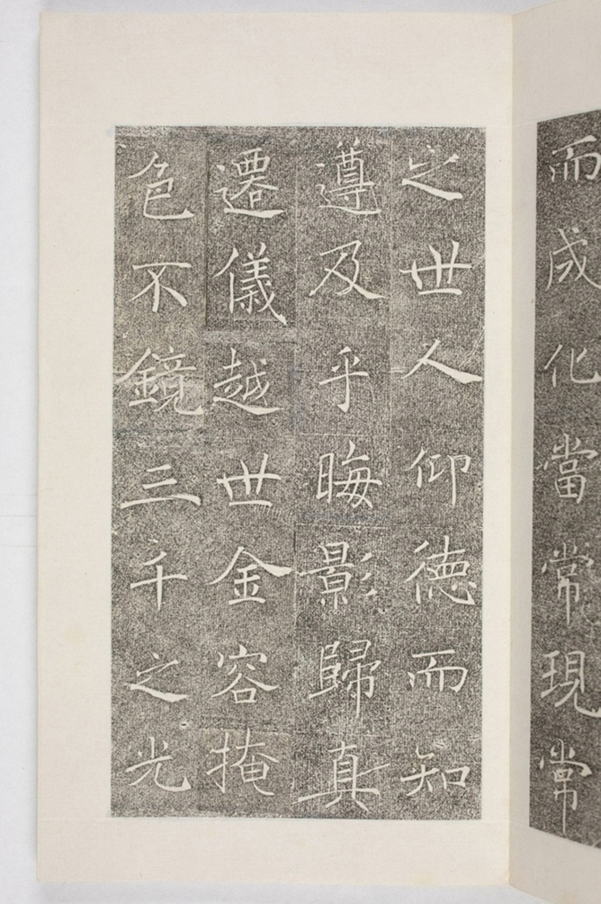 而成化當常現常
之世人仰德而知
遵及乎晦影歸真
遷儀越世金容掩
色不鏡三千之光